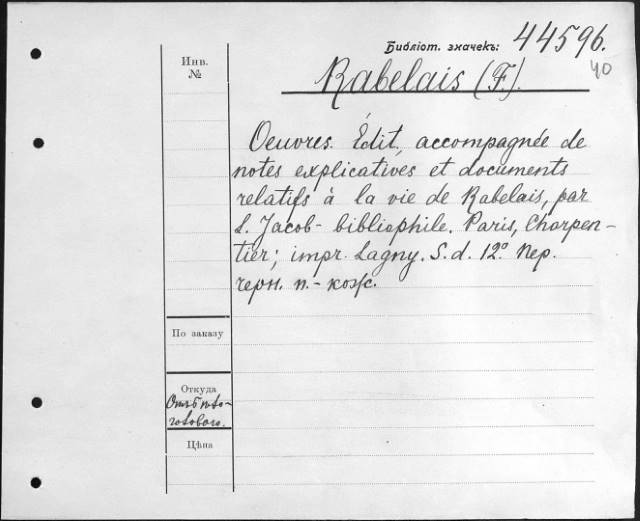 Библіот. значекъ: 44596.
40
Инв.
№
Rabelais (F.).
Oeuvres. Édit. accompagnée de
notes explicatives et documents
relatifs à la vie de Rabelais, par
L. Jacob-bibliophile. Paris, Charpen-
tier; impr. Lagny. S. d. 12°. Пер.
черн. п.-кож.
По заказу
Откуда
Цѣна